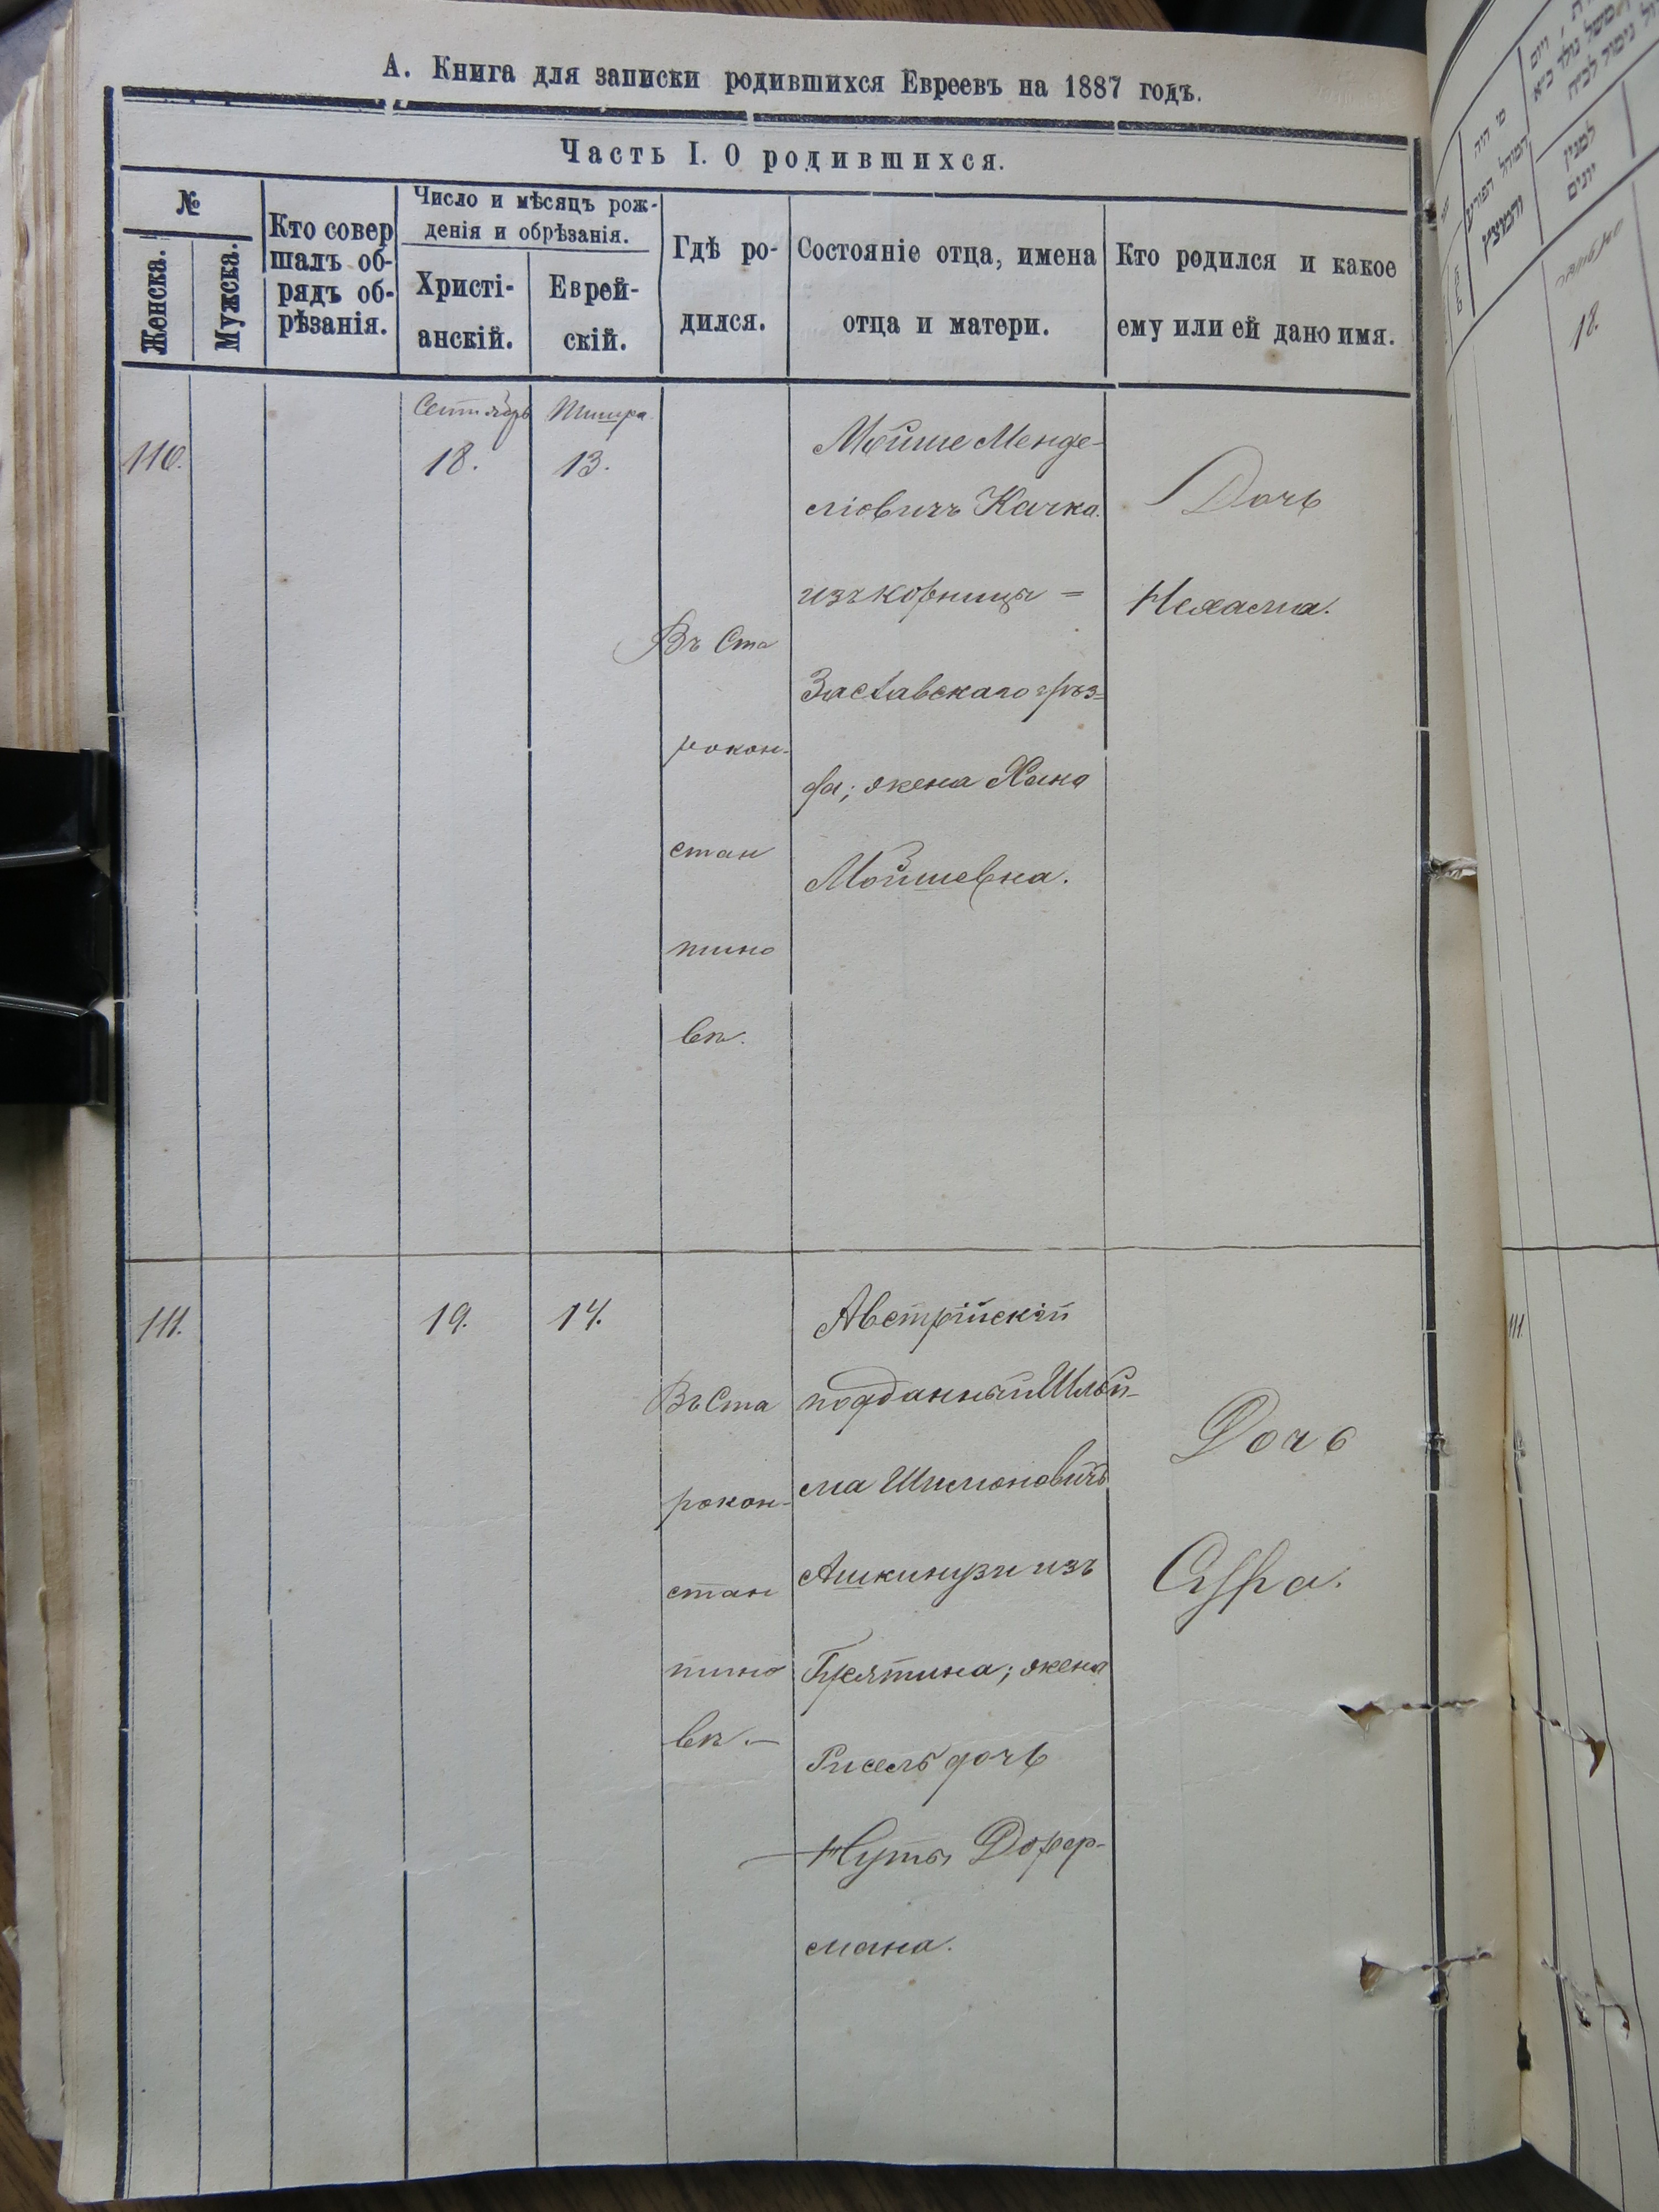 А. Книга для записки родившихся Евреевъ на 1887 годъ.
Часть I. О родившихся.
№
Женска.
Мужска.
Кто совер
шалъ об-
рядъ об-
рѣзанія.
Число и мѣсяцъ рож-
денія и обрѣзанія.
Христі-
анскій.
Еврей-
скій.
Гдѣ ро-
дился.
Состояніе отца, имена
отца и матери.
Кто родился и какое
ему или ей дано имя.
110.
Сентябрь
18.
Тишра
13.
Въ Ста
рокон-
стан
тино
вѣ.
Мойше Менде-
ліовичъ Качка
изъ
Заславскаго уѣз-
да; жена Хана
Мойшевна.
Дочь
Нехама.
111.
19.
14.
Въ Ста
рокон-
стан
тино
вѣ.—
Австрійскій
подданный Шлёй-
ма Шимоновичъ
Ашкинузи изъ
жена
Рисель дочь
Нуты Дорф-
мана.
Дочь
Сура.
18.
111.